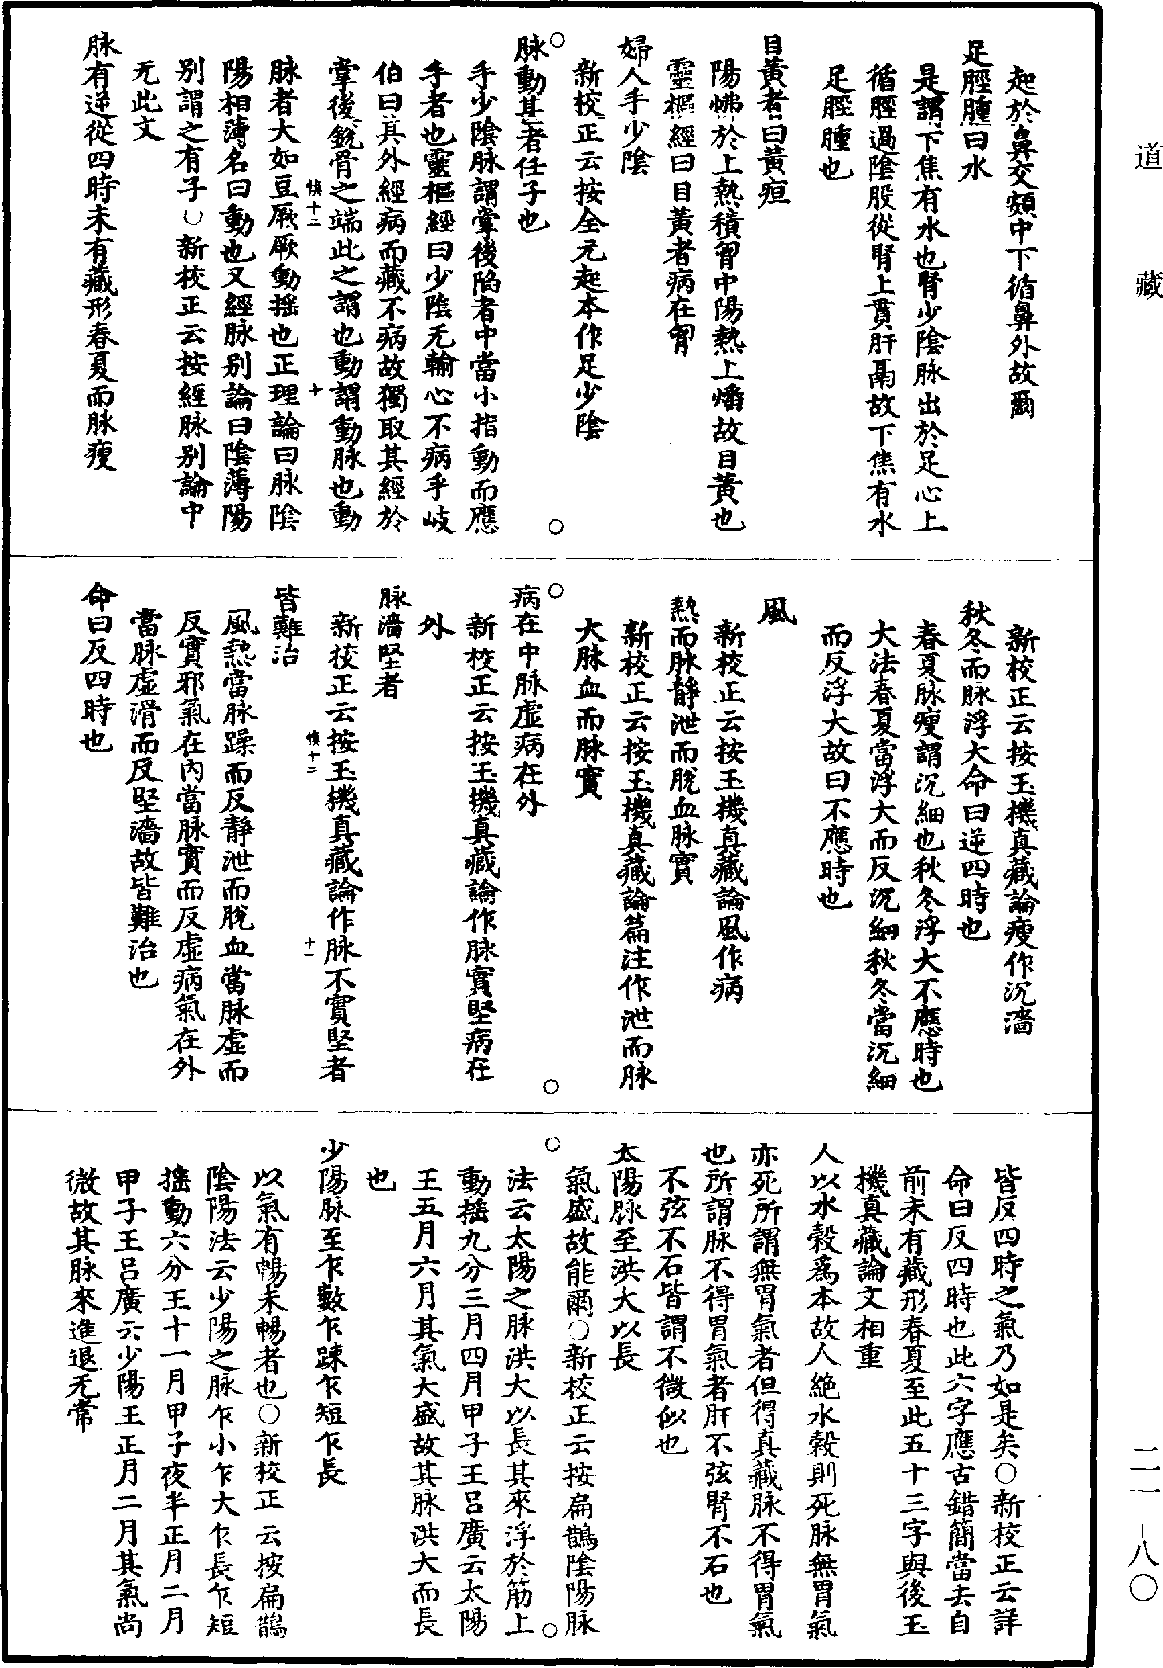 道藏
二一—八〇
起於鼻交頞中下循鼻外故爾
足脛腫曰水
是謂下焦有水也腎少陰脉出於足心上
循脛過陰股從腎上貫肝鬲故下焦有水
足脛腫也
目黃者曰黃疸
陽怫於上熱積胷中陽熱上燔故目黃也
靈樞經曰目黃者病在胷
婦人手少陰
新校正云按全元起本作足少陰
○脉動甚者任子也○
手少陰脉謂掌後陷者中當小指動而應
手者也靈樞經曰少陰无輸心不病乎岐
伯曰其外經病而藏不病故獨取其經於
掌後銳骨之端此之謂也動謂動脉也動
慎十二 十
脉者大如豆厥厥動搖也正理論曰脉陰
陽相薄名曰動也又經脉别論曰陰薄陽
别謂之有子○新校正云按經脉别論中
无此文
脉有逆從四時未有藏形春夏而脉瘦
新校正云按玉機真藏論瘦作沉濇
秋冬而脉浮大命曰逆四時也
春夏脉瘦謂沉細也秋冬浮大不應時也
大法春夏當浮大而反沉細秋冬當沉細
而反浮大故曰不應時也
風
新校正云按玉機真藏論風作病
熱而脉靜泄而脫血脉實
新校正云按玉機真藏論篇注作泄而脉
大脉血而脉實
○病在中脉虛病在外○
新校正云按玉機真藏論作脉實堅病在
外
脉濇堅者
新校正云按玉機真藏論作脉不實堅者
慎十二 十一
皆難治
風熱當脉躁而反靜泄而脫血當脉虛而
反實邪氣在內當脉實而反虛病氣在外
當脉虛滑而反堅濇故皆難治也
命曰反四時也
皆反四時之氣乃如是矣○新校正云詳
命曰反四時也此六字應古錯簡當去自
前未有藏形春夏至此五十三字與後玉
機真藏論文相重
人以水穀爲本故人絶水穀則死脉無胃氣
亦死所謂無胃氣者但得真藏脉不得胃氣
也所謂脉不得胃氣者肝不弦腎不石也
不弦不石皆謂不微似也
太陽脉至洪大以長
○氣盛故能爾○新校正云按扁鵲陰陽脉○
法云太陽之脉洪大以長其來浮於筋上
動搖九分三月四月甲子王吕廣云太陽
王五月六月其氣大盛故其脉洪大而長
也
少陽脉至乍數乍踈乍短乍長
以氣有暢未暢者也○新校正云按扁鵲
陰陽法云少陽之脉乍小乍大乍長乍短
搖動六分王十一月甲子夜半正月二月
甲子王吕廣云少陽王正月二月其氣尚
微故其脉來進退无常